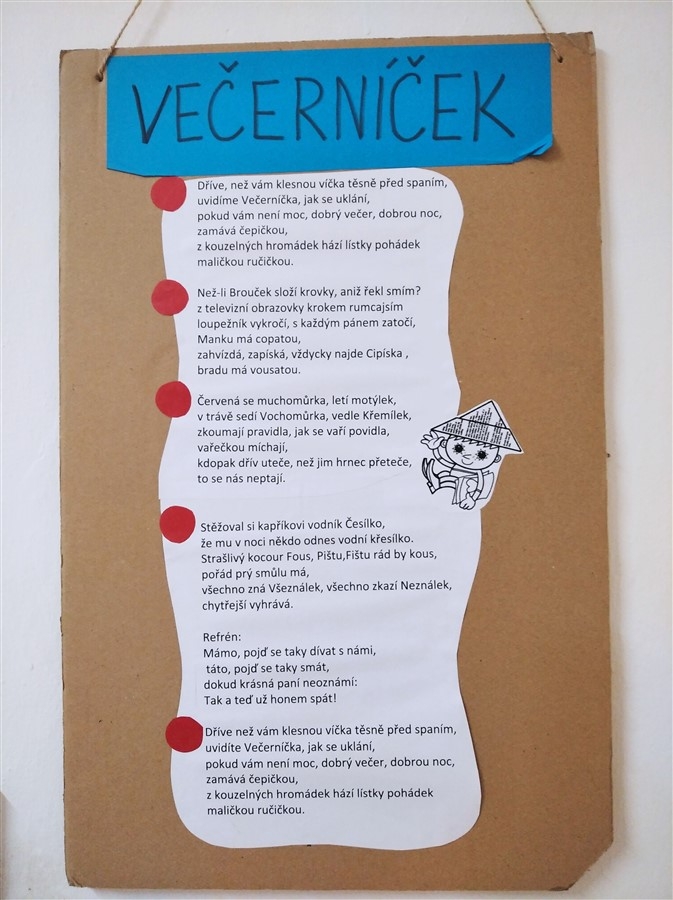 VEČERNÍČEK
Dříve, než vám klesnou víčka těsně před spaním,
uvidíme Večerníčka, jak se uklání,
pokud vám není moc, dobrý večer, dobrou noc,
zamává čepičkou,
z kouzelných hromádek hází lístky pohádek
maličkou ručičkou.
Než-li Brouček složí krovky, aniž řekl smím?
z televizní obrazovky krokem rumcajsím
loupežník vykročí, s každým pánem zatočí,
Manku má copatou,
zahvízdá, zapíská, vždycky najde Cipíska ,
bradu má vousatou.
Červená se muchomůrka, letí motýlek,
v trávě sedí Vochomůrka, vedle Křemílek,
zkoumají pravidla, jak se vaří povidla,
vařečkou míchají,
kdopak dřív uteče, než jim hrnec přeteče,
to se nás neptají.
Stěžoval si kapříkovi vodník Česílko,
že mu v noci někdo odnes vodní křesílko.
Strašlivý kocour Fous, Pištu,Fištu rád by kous,
pořád prý smůlu má,
všechno zná Všeználek, všechno zkazí Neználek,
chytřejší vyhrává.
Refrén:
Mámo, pojď se taky dívat s námi,
táto, pojď se taky smát,
dokud krásná paní neoznámí:
Tak a teď už honem spát!
Dříve než vám klesnou víčka těsně před spaním,
uvidíte Večerníčka, jak se uklání,
pokud vám není moc, dobrý večer, dobrou noc,
zamává čepičkou,
z kouzelných hromádek hází lístky pohádek
maličkou ručičkou.